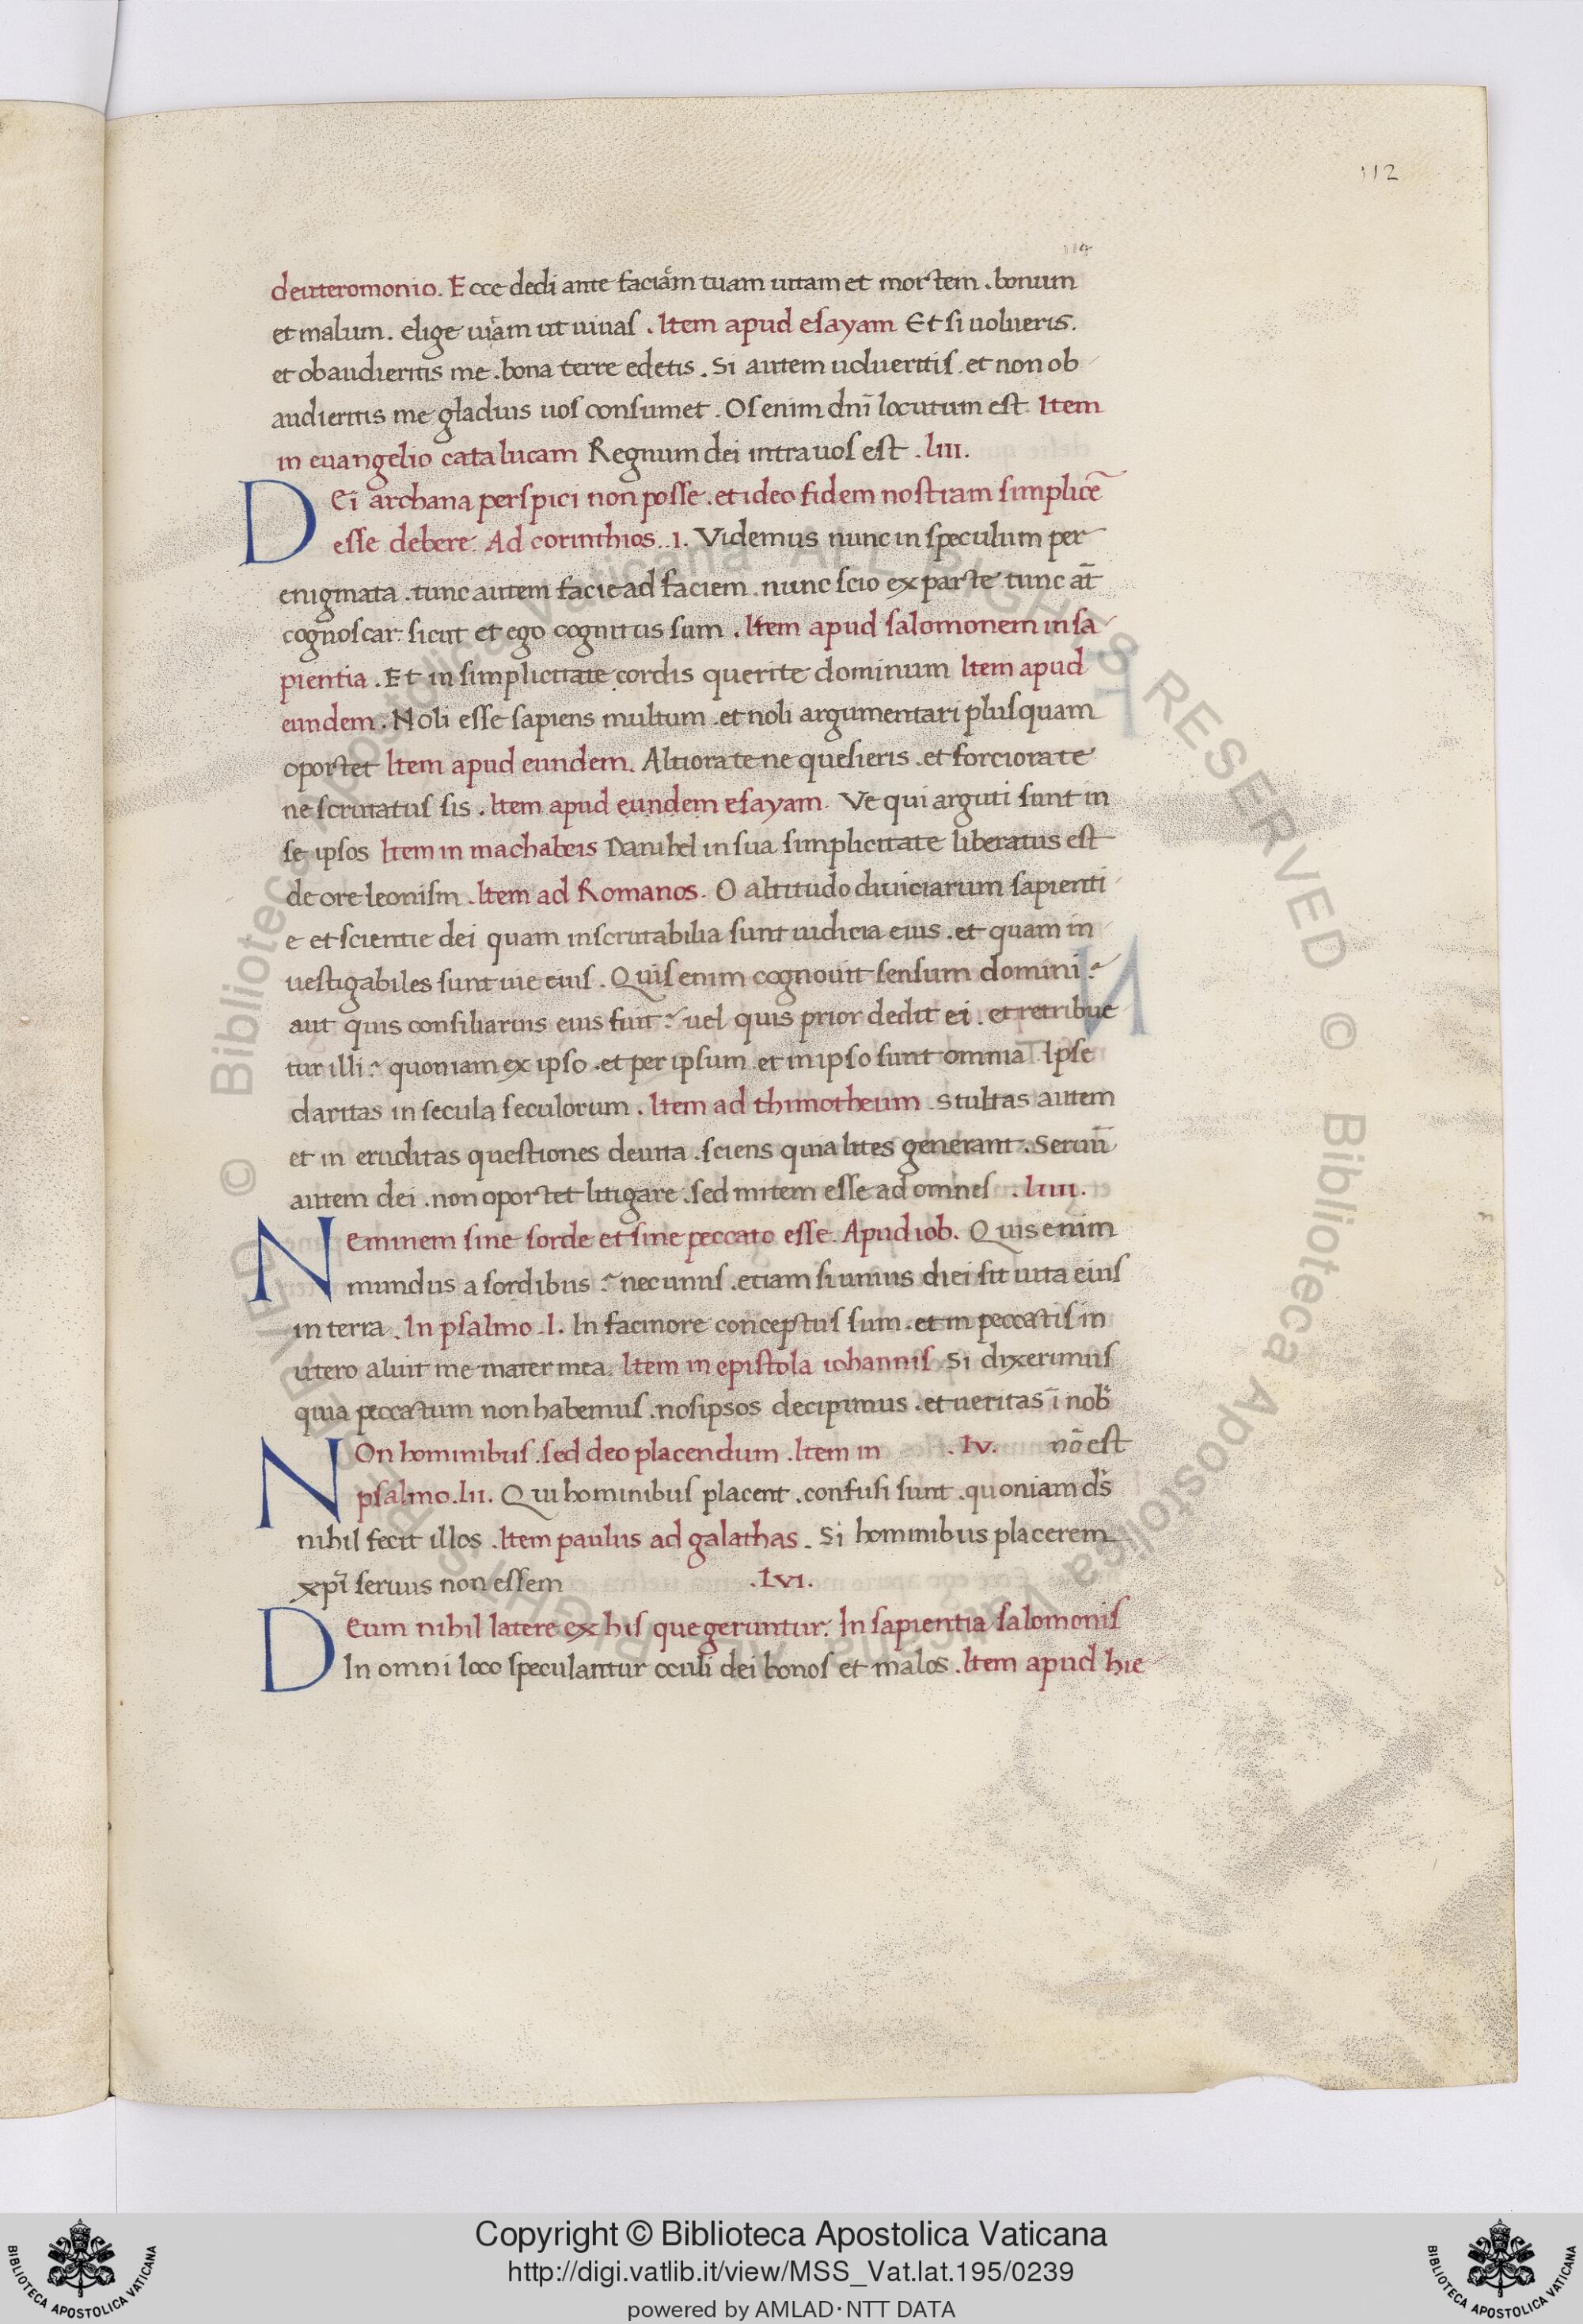 112
114
deuteromonio. Ecce dedi ante faciam tuam uitam et mortem. bonum
et malum. elige uiam ut uiuas. Item apud esayam Et si uolueris.
et obaudieritis me. bona terre edetis. Si autem uolueritis. et non ob
audieritis me gladius uos consumet. Os enim dnī locutum est. Item
in euangelio cata lucam Regnum dei intra uos est. liii.
DEi archana perspici non posse. et ideo fidem nostram simplicē
esse debere. Ad corinthios. .1. Videmus nunc in speculum per
enigmata. tunc autem facie ad faciem. nunc scio ex parte tunc at̄
cognoscar sicut et ego cognitus sum. Item apud salomonem in sa
pientia. Et in simplicitate cordis querite dominum Item apud
eundem. Noli esse sapiens multum. et noli argumentari plusquam
oportet Item apud eundem. Altiora te ne quesieris. et forciora te
ne scrutatus sis. Item apud eundem esayam. Ve qui arguti sunt in
se ipsos Item in machabeis Danihel in sua simplicitate liberatus est
de ore leonism. Item ad Romanos. O altitudo diuiciarum sapienti
e et scientie dei quam inscrutabilia sunt iudicia eius. et quam in
uestigabiles sunt uie eius. Quis enim cognouit sensum domini?
aut quis consiliarius eius fuit? uel quis prior dedit ei. et retribue
tur illi? quoniam ex ipso. et per ipsum et in ipso sunt omnia Ipse
claritas in secula seculorum. Item ad thimotheum. Stultas autem
et in eruditas questiones deuita. sciens quia lites generant. Seruū
autem dei. non oportet litigare. sed mitem esse ad omnes. liiii.
NEminem sine sorde et sine peccato esse. Apud iob. Quis enim
mundus a sordibus? nec unus. etiam si unius diei sit uita eius
in terra. In psalmo .l. In facinore conceptus sum. et in peccatis in
utero aluit me mater mea. Item in epistola iohannis Si dixerimus
quia peccatum non habemus. nosipsos decipimus. et ueritas ī nob
NOn hominibus. sed deo placendum. Item in .lv. nō est
psalmo. lii. Qui hominibus placent. confusi sunt. quoniam ds̄
nihil fecit illos. Item paulus ad galathas. Si hominibus placerem
xpī seruus non essem .lvi.
DEum nihil latere ex his que geruntur. In sapientia salomonis
In omni loco speculantur oculi dei bonos et malos. Item apud hie
© Biblioteca Apostolica Vaticana ALL RIGHTS RESERVED © Biblioteca Apostolica Vaticana ALL RIGHTS RESERVED
Copyright © Biblioteca Apostolica Vaticana
http://digi.vatlib.it/view/MSS_Vat.lat.195/0239
powered by AMLAD·NTT DATA
BIBLIOTECA APOSTOLICA VATICANA
BIBLIOTECA APOSTOLICA VATICANA